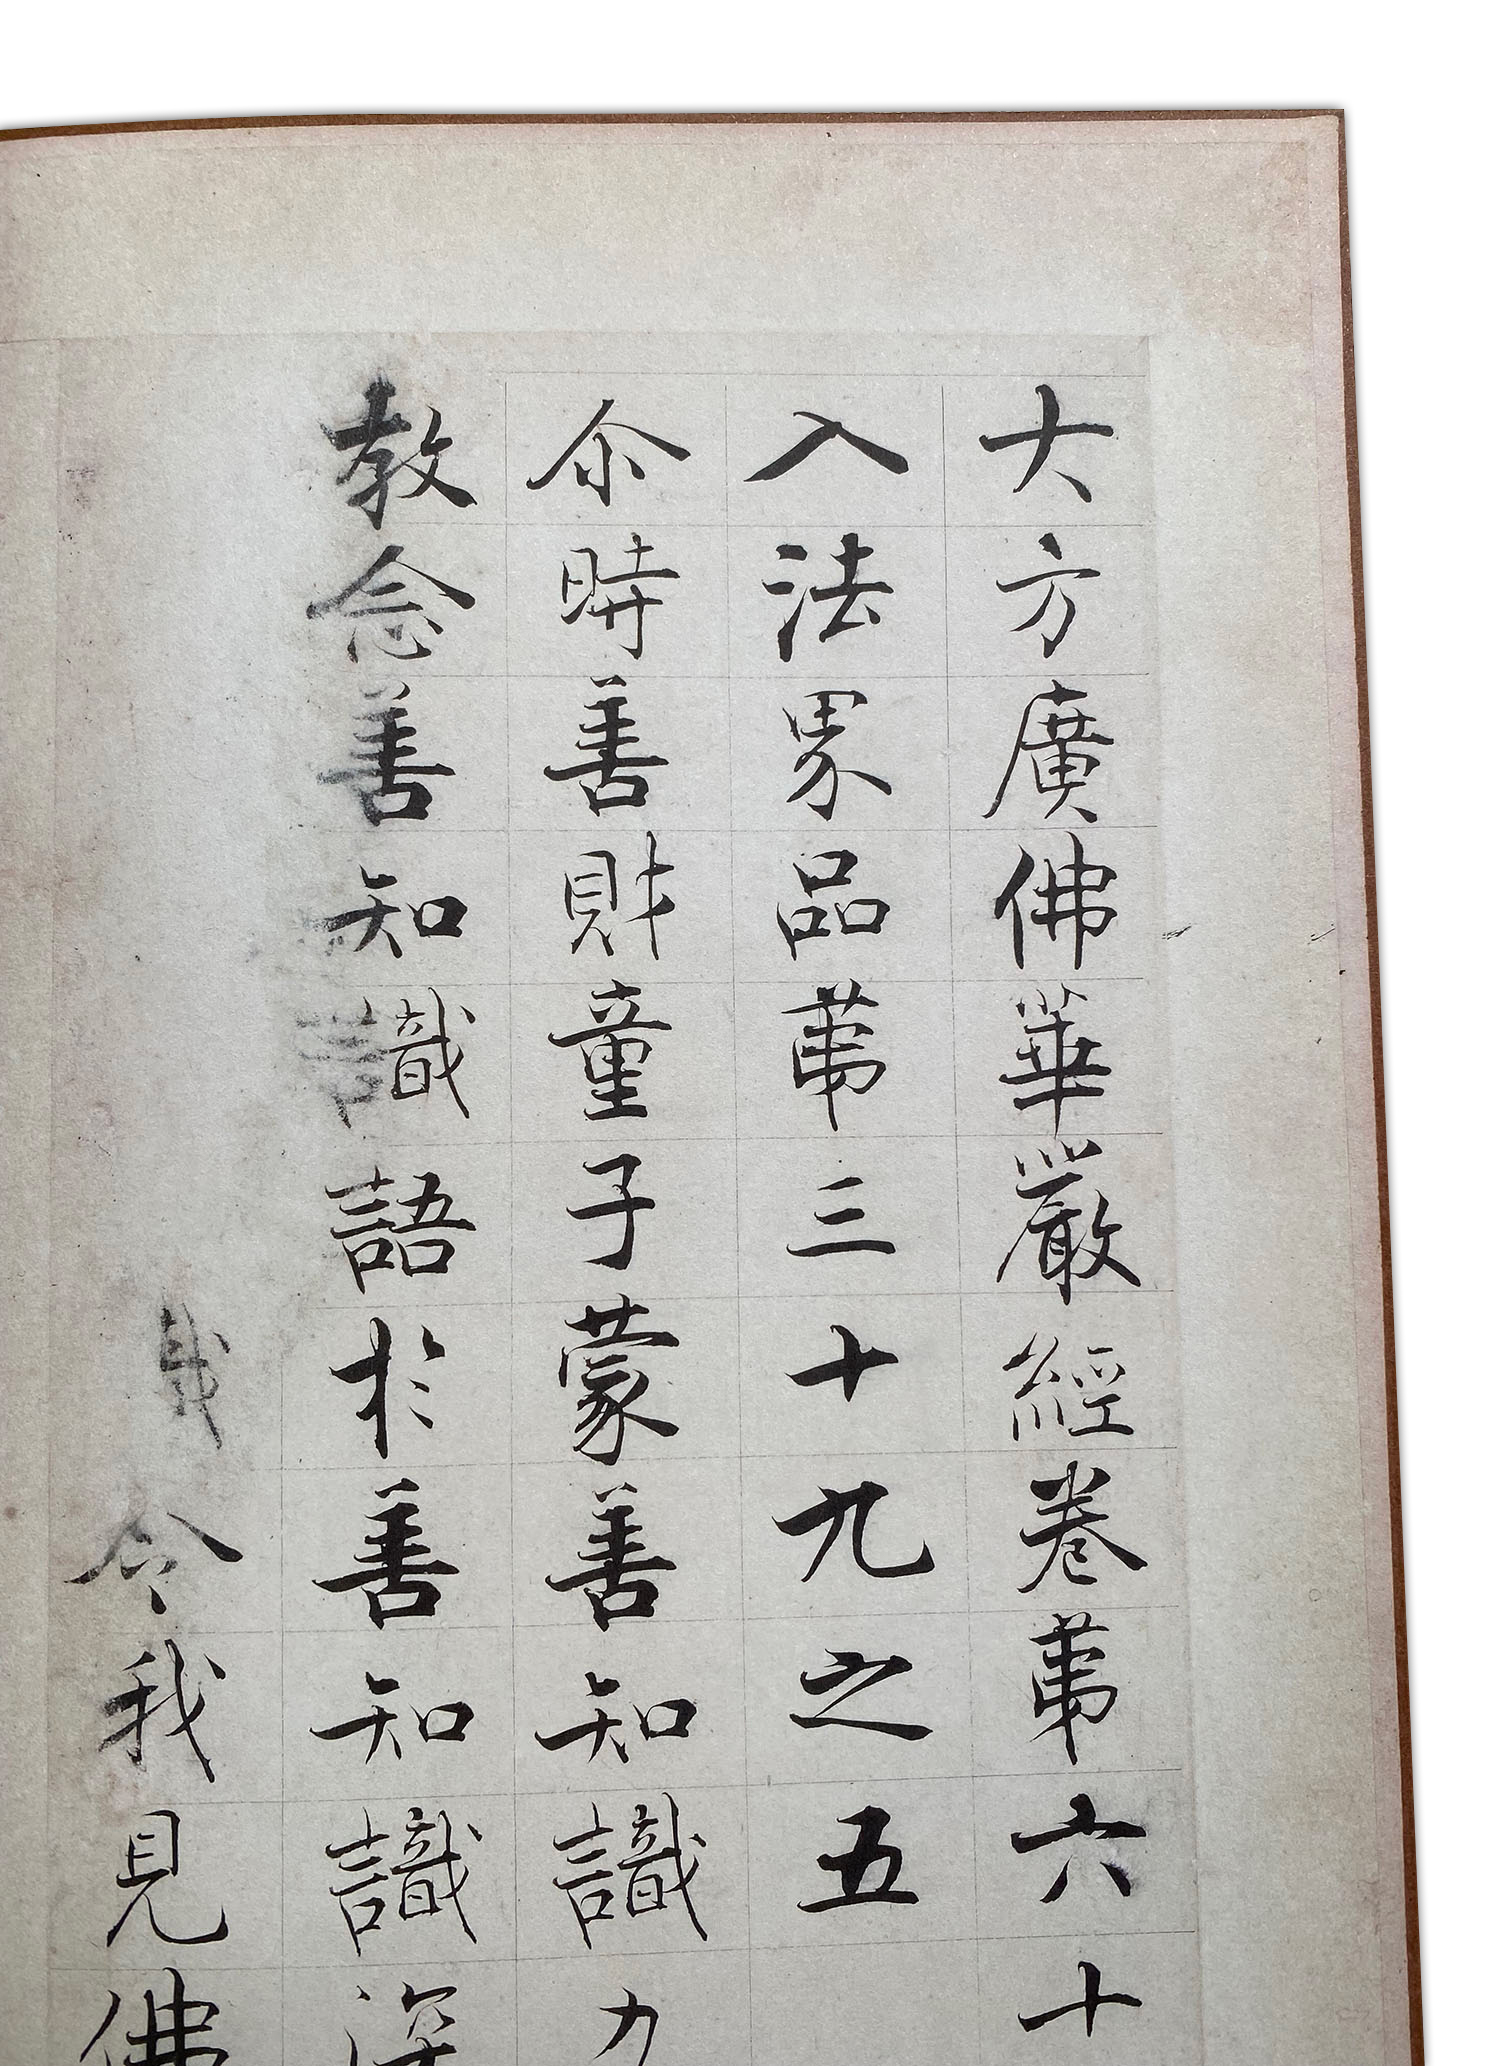 大方廣佛華嚴經卷第六十
入法界品第三十九之五
尒時善財童子蒙善知識力
教念善知識語於善知識深
令我見佛